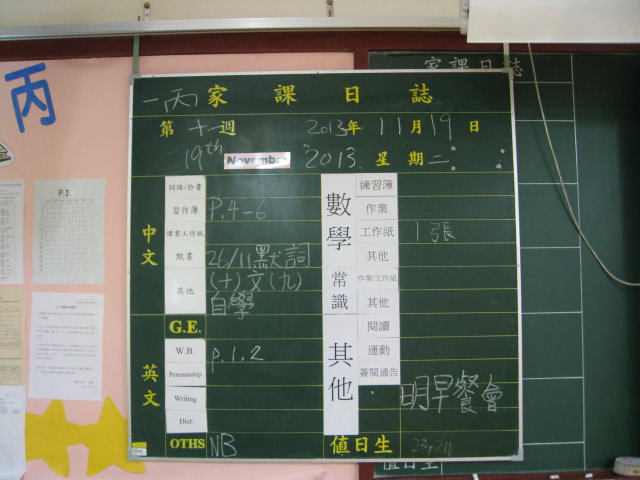 丙
家課日誌
一丙家課日誌
第十一週 2013年11月19日
19th November 2013. 星期二
中文
詞語/抄書
習作簿 P.4-6
課業工作紙
默書 26/11默詞
其他 (十)文(九)
自學
英文
G.E.
W.B. P.1,2
Penmanship
Writing
Dict.
OTHS NB
數學
練習簿
作業
工作紙 1張
其他
常識
作業/工作紙
其他
其他
閱讀
運動
簽閱通告
明早餐會
值日生 23,24
值日生
P.1C